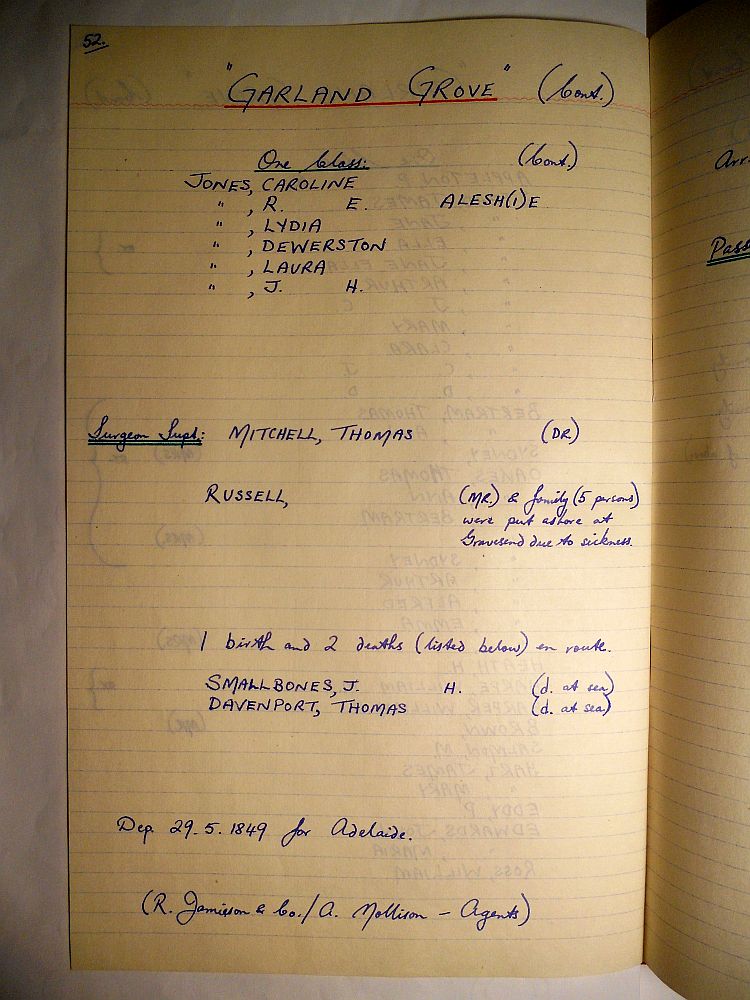 52.
"GARLAND GROVE" (Cont.)
One Class: (Cont.)
JONES, CAROLINE
" , R. E. ALESH(I)E
" , LYDIA
" , DEWERSTON
" , LAURA
" , J. H.
Surgeon Supt: MITCHELL, THOMAS (DR.)
RUSSELL, (MR.) & family (5 persons)
were put ashore at
Gravesend due to sickness.
1 birth and 2 deaths (listed below) en route.
SMALLBONES, J. H. (d. at sea)
DAVENPORT, THOMAS (d. at sea)
Dep. 29.5.1849 for Adelaide.
(R. Jamieson & Co./A. Mollison – Agents)
Arr
Pass